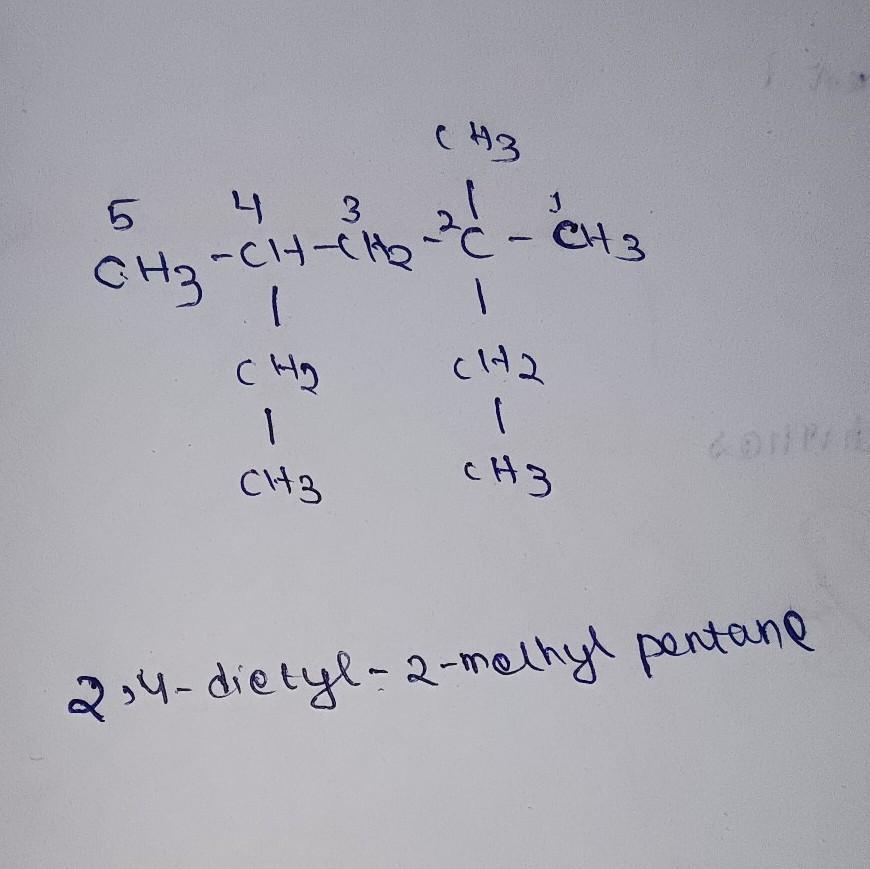 CH3
|
5 4 3 2 1
CH3 - CH - CH2 - C - CH3
| |
CH2 CH2
| |
CH3 CH3
2,4-dietyl-2-methyl pentane